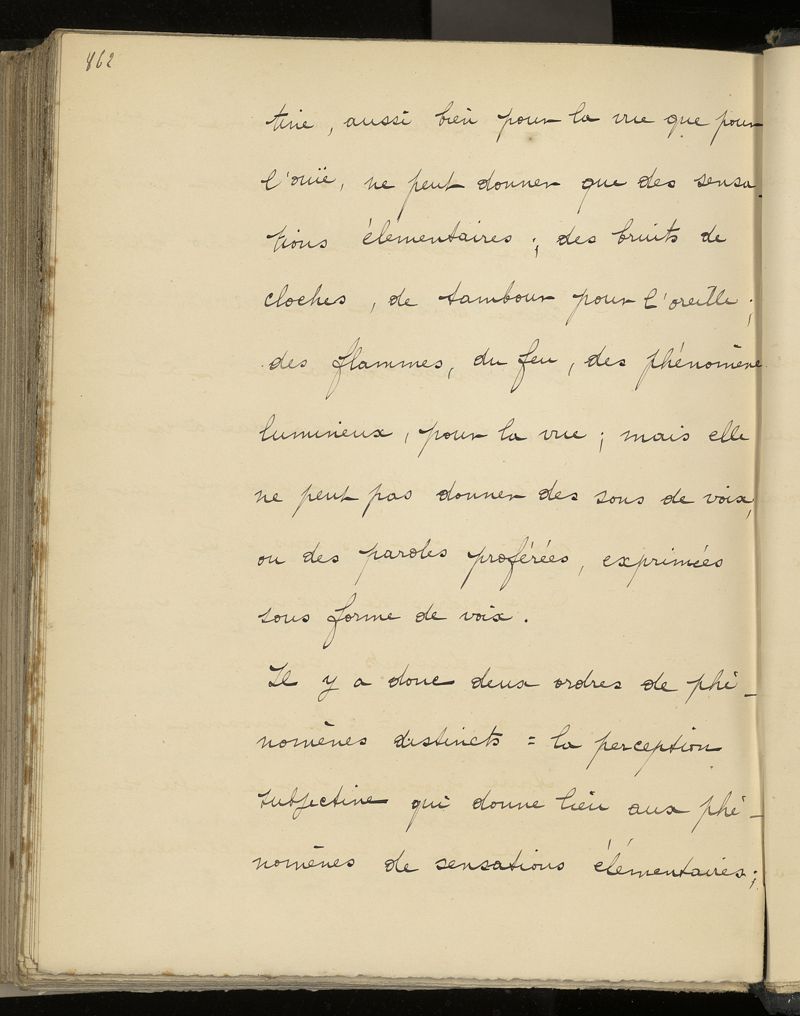 862
tive, aussi bien pour la vue que pour
l'ouïe, ne peut donner que des sensa-
tions élémentaires ; des bruits de
cloches, de tambour pour l'oreille ;
des flammes, du feu, des phénomène
lumineux, pour la vue ; mais elle
ne peut pas donner des sons de voix,
ou des paroles proférées, exprimées
sous forme de voix.
Il y a donc deux ordres de phé-
nomènes distincts = la perception
subjective qui donne lieu aux phé-
nomènes de sensations élémentaires ;